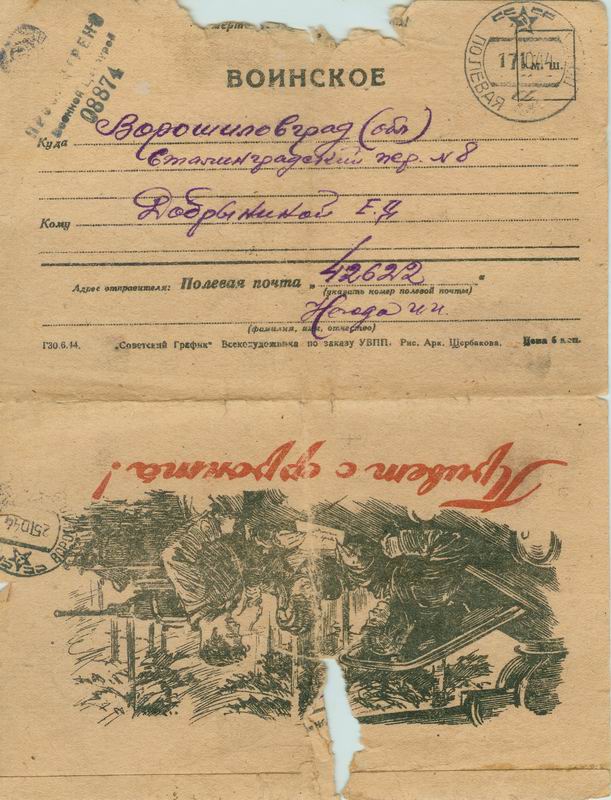 ПРОСМОТРЕНО
Военной Цензурой
08874
СССР
ПОЛЕВАЯ
17 10 44
ВОИНСКОЕ
Куда Ворошиловград (обл)
Сталинградский пер. № 8
Кому Добрыниной Е.Д
Адрес отправителя: Полевая почта „42622“
(указать номер полевой почты)
(фамилия, имя, отчество)
Г30.6.44. „Советский График“ Всекохудожника по заказу УВПП. Рис. Арк. Щербакова. Цена 6 коп.
Привет с фронта!
25 10 44
СССР